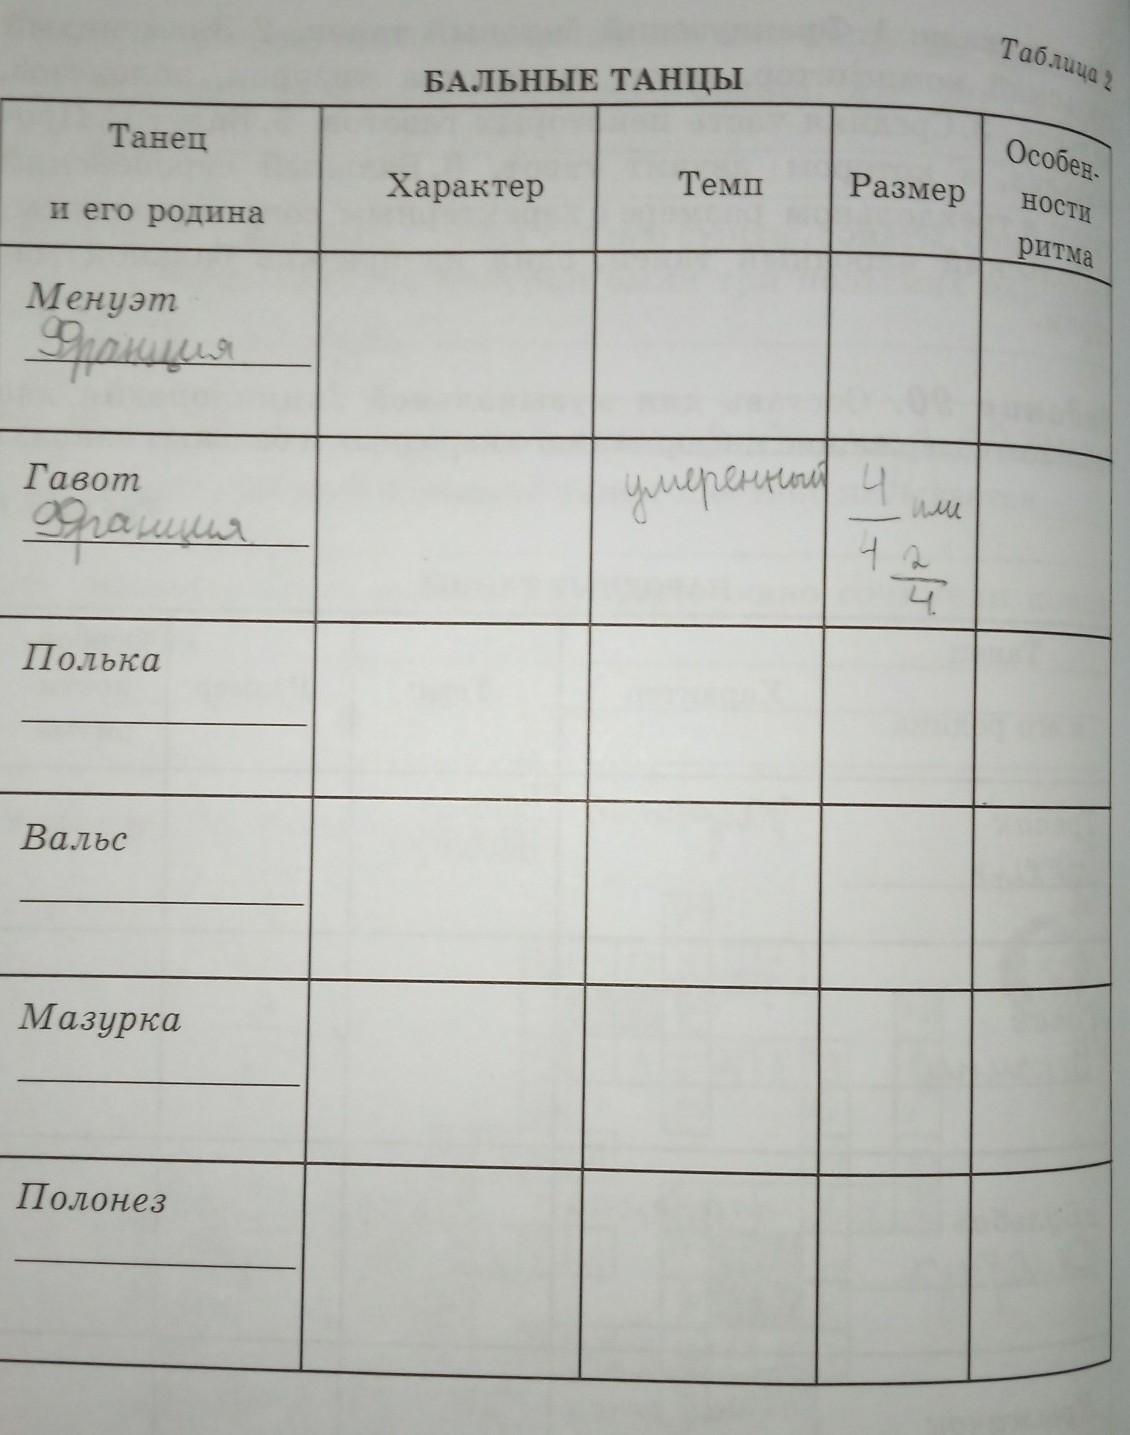 Таблица 2
БАЛЬНЫЕ ТАНЦЫ
Танец
и его родина
Характер
Темп
Размер
Особен-
ности
ритма
Менуэт
Франция
Гавот
Франция
умеренный
4
4
или
2
4
Полька
Вальс
Мазурка
Полонез